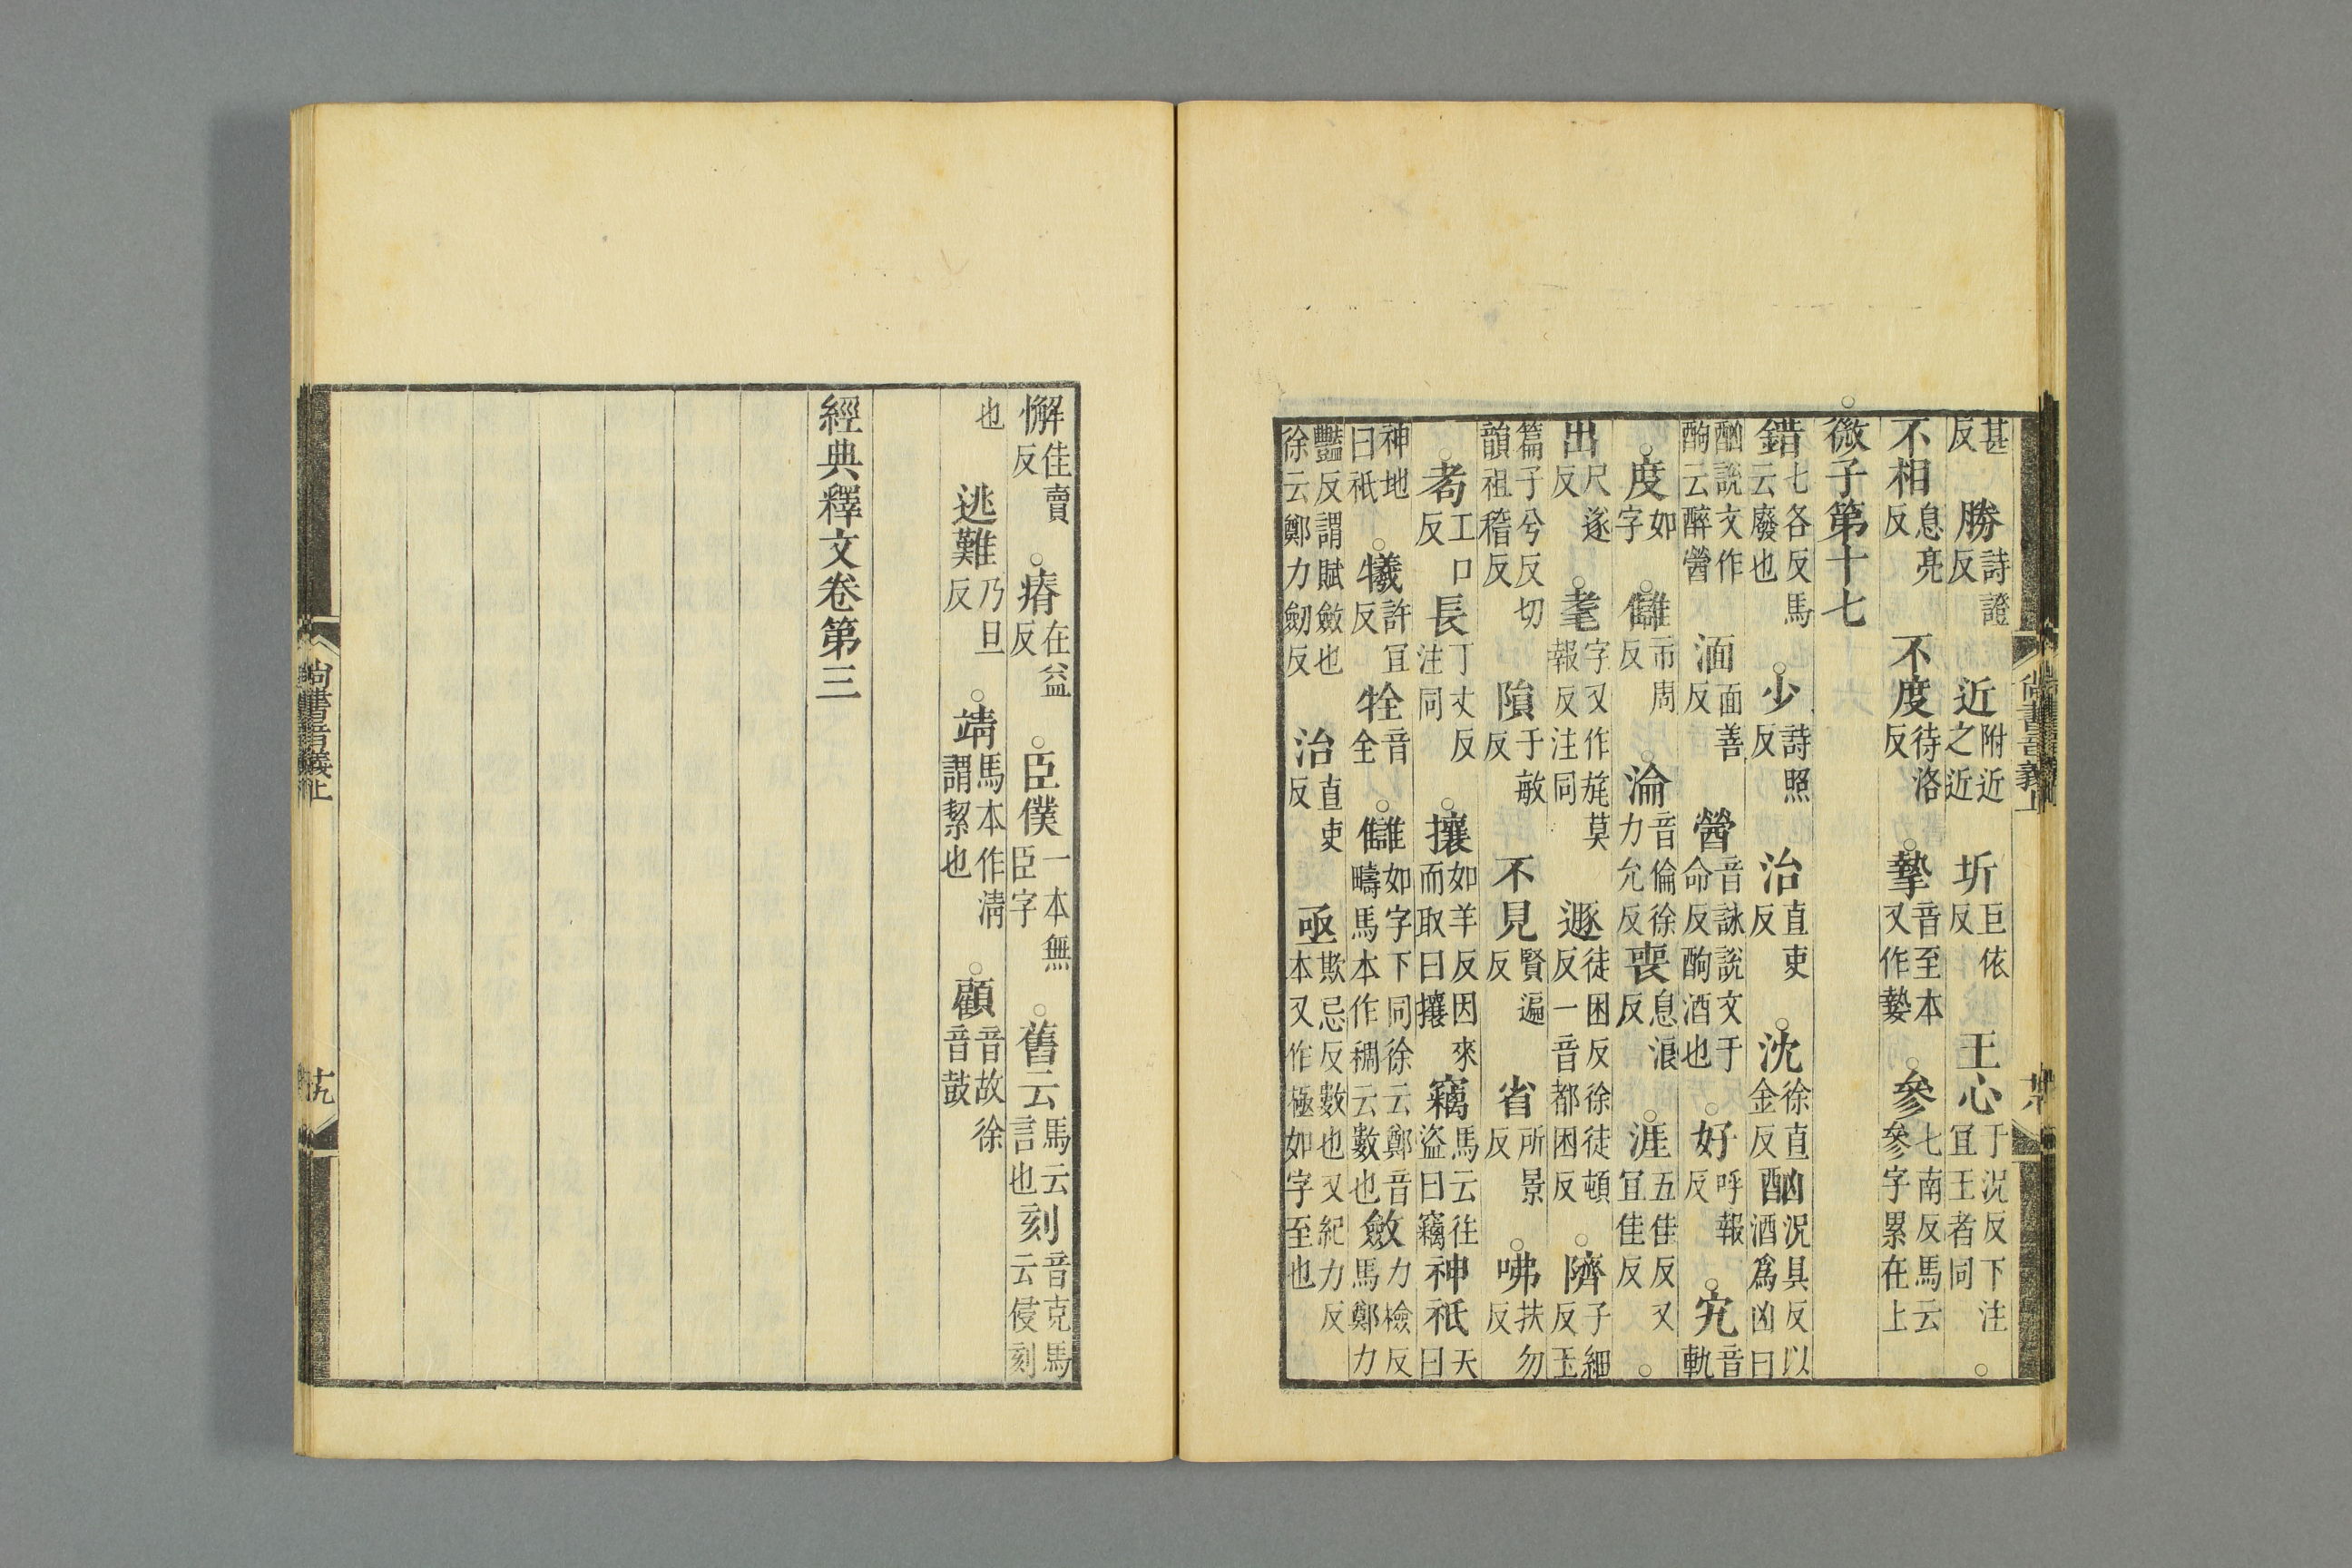 甚反 勝詩證反 近附近之近 圻巨依反 王心于況反下注宜王者同○
不相息亮反 不度待洛反 ○摯音至本又作䝱 ○參七南反馬云參字累在上
○微子第十七
錯七各反馬云廢也 ○少詩照反 治直吏反 ○沈徐直金反 酗況具反以酒爲凶曰
酗說文作酌云醉䤍 湎面善反 䤍音詠說文于命反酌酒也 ○好呼報反 ○宄音軌
○度如字 ○讎市周反 ○淪音倫徐力允反 喪息浪反 ○涯五佳反又宜佳反○
出尺遂反 ○耄字又作旄莫報反注同 遯徒困反徐徒頓反一音都困反 ○隮子細反玉
篇子兮反切韻祖稽反 隕于敏反 不見賢遍反 省所景反 ○咈扶勿反
○耇工口反 長丁丈反注同 ○攘如羊反因來而取曰攘 竊馬云往盜曰竊 神祇天曰
神地曰祇 ○犧許宜反 牷音全 ○讎如字下同徐云鄭音疇馬本作稠云數也 斂力檢反馬鄭力
豔反謂賦斂也徐云鄭力劒反 治直吏反 亟欺忌反數也又紀力反本又作極如字至也
懈佳賣反 ○瘠在益反 ○臣僕一本無臣字 ○舊云馬云言也 刻音克馬云侵刻
也 逃難乃旦反 ○靖馬本作清謂絜也 ○顧音故徐音鼓
經典釋文卷第三
尚書音義上
十九